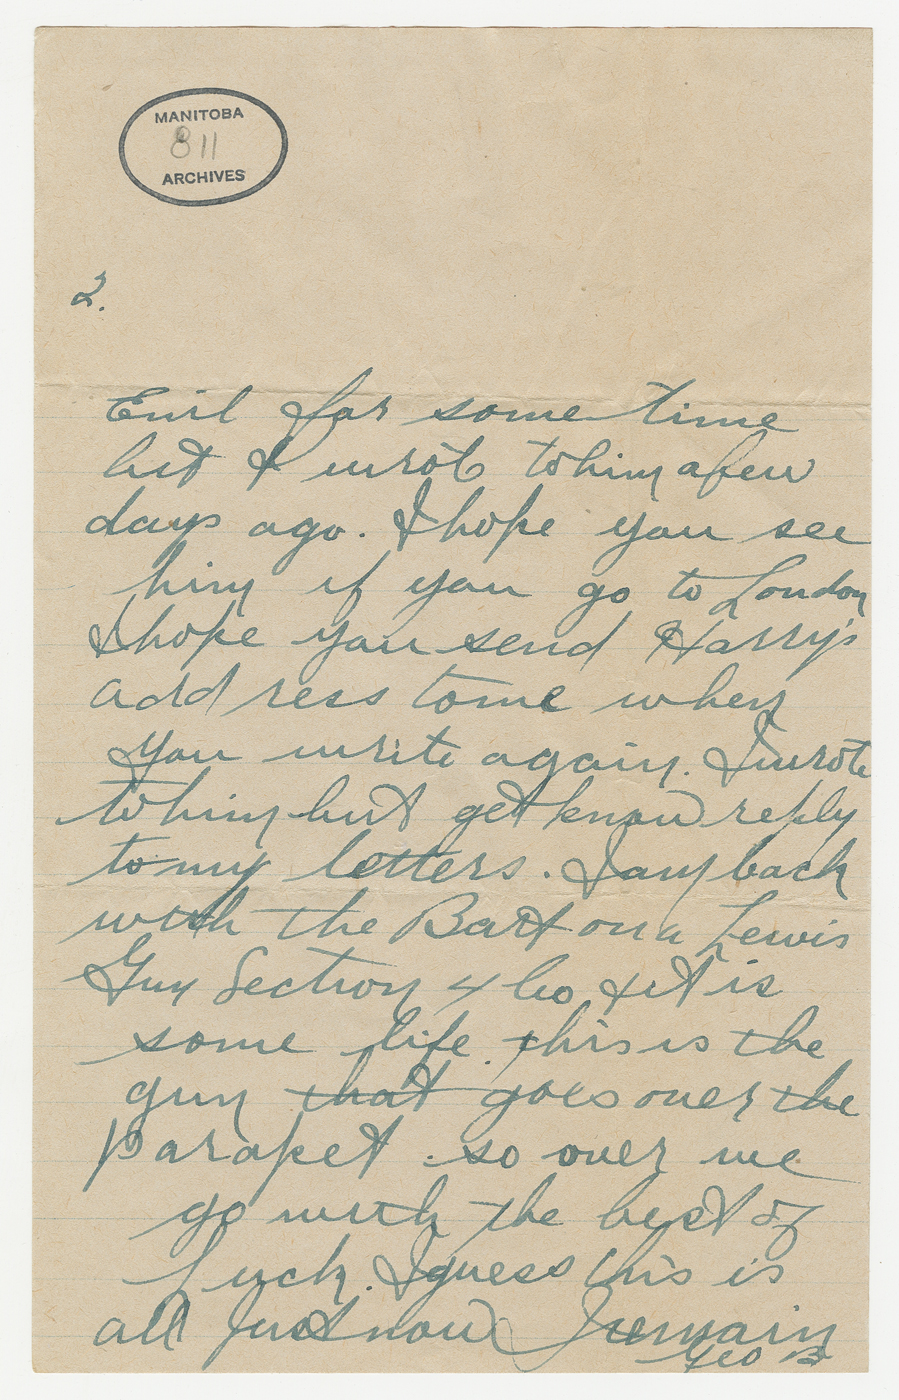 MANITOBA
811
ARCHIVES
2.
Emil for some time
but I wrote to him a few
days ago. I hope you see
him if you go to London
I hope you send Harry's
address to me when
you write again. I wrote
to him but get know reply
to my letters. I am back
with the Batt on a Lewis
Gun Section 4 Co & it is
some life. this is the
gun that goes over the
Parapet. so over we
go with the best of
luck. I guess this is
all Just now I remain
Geo B